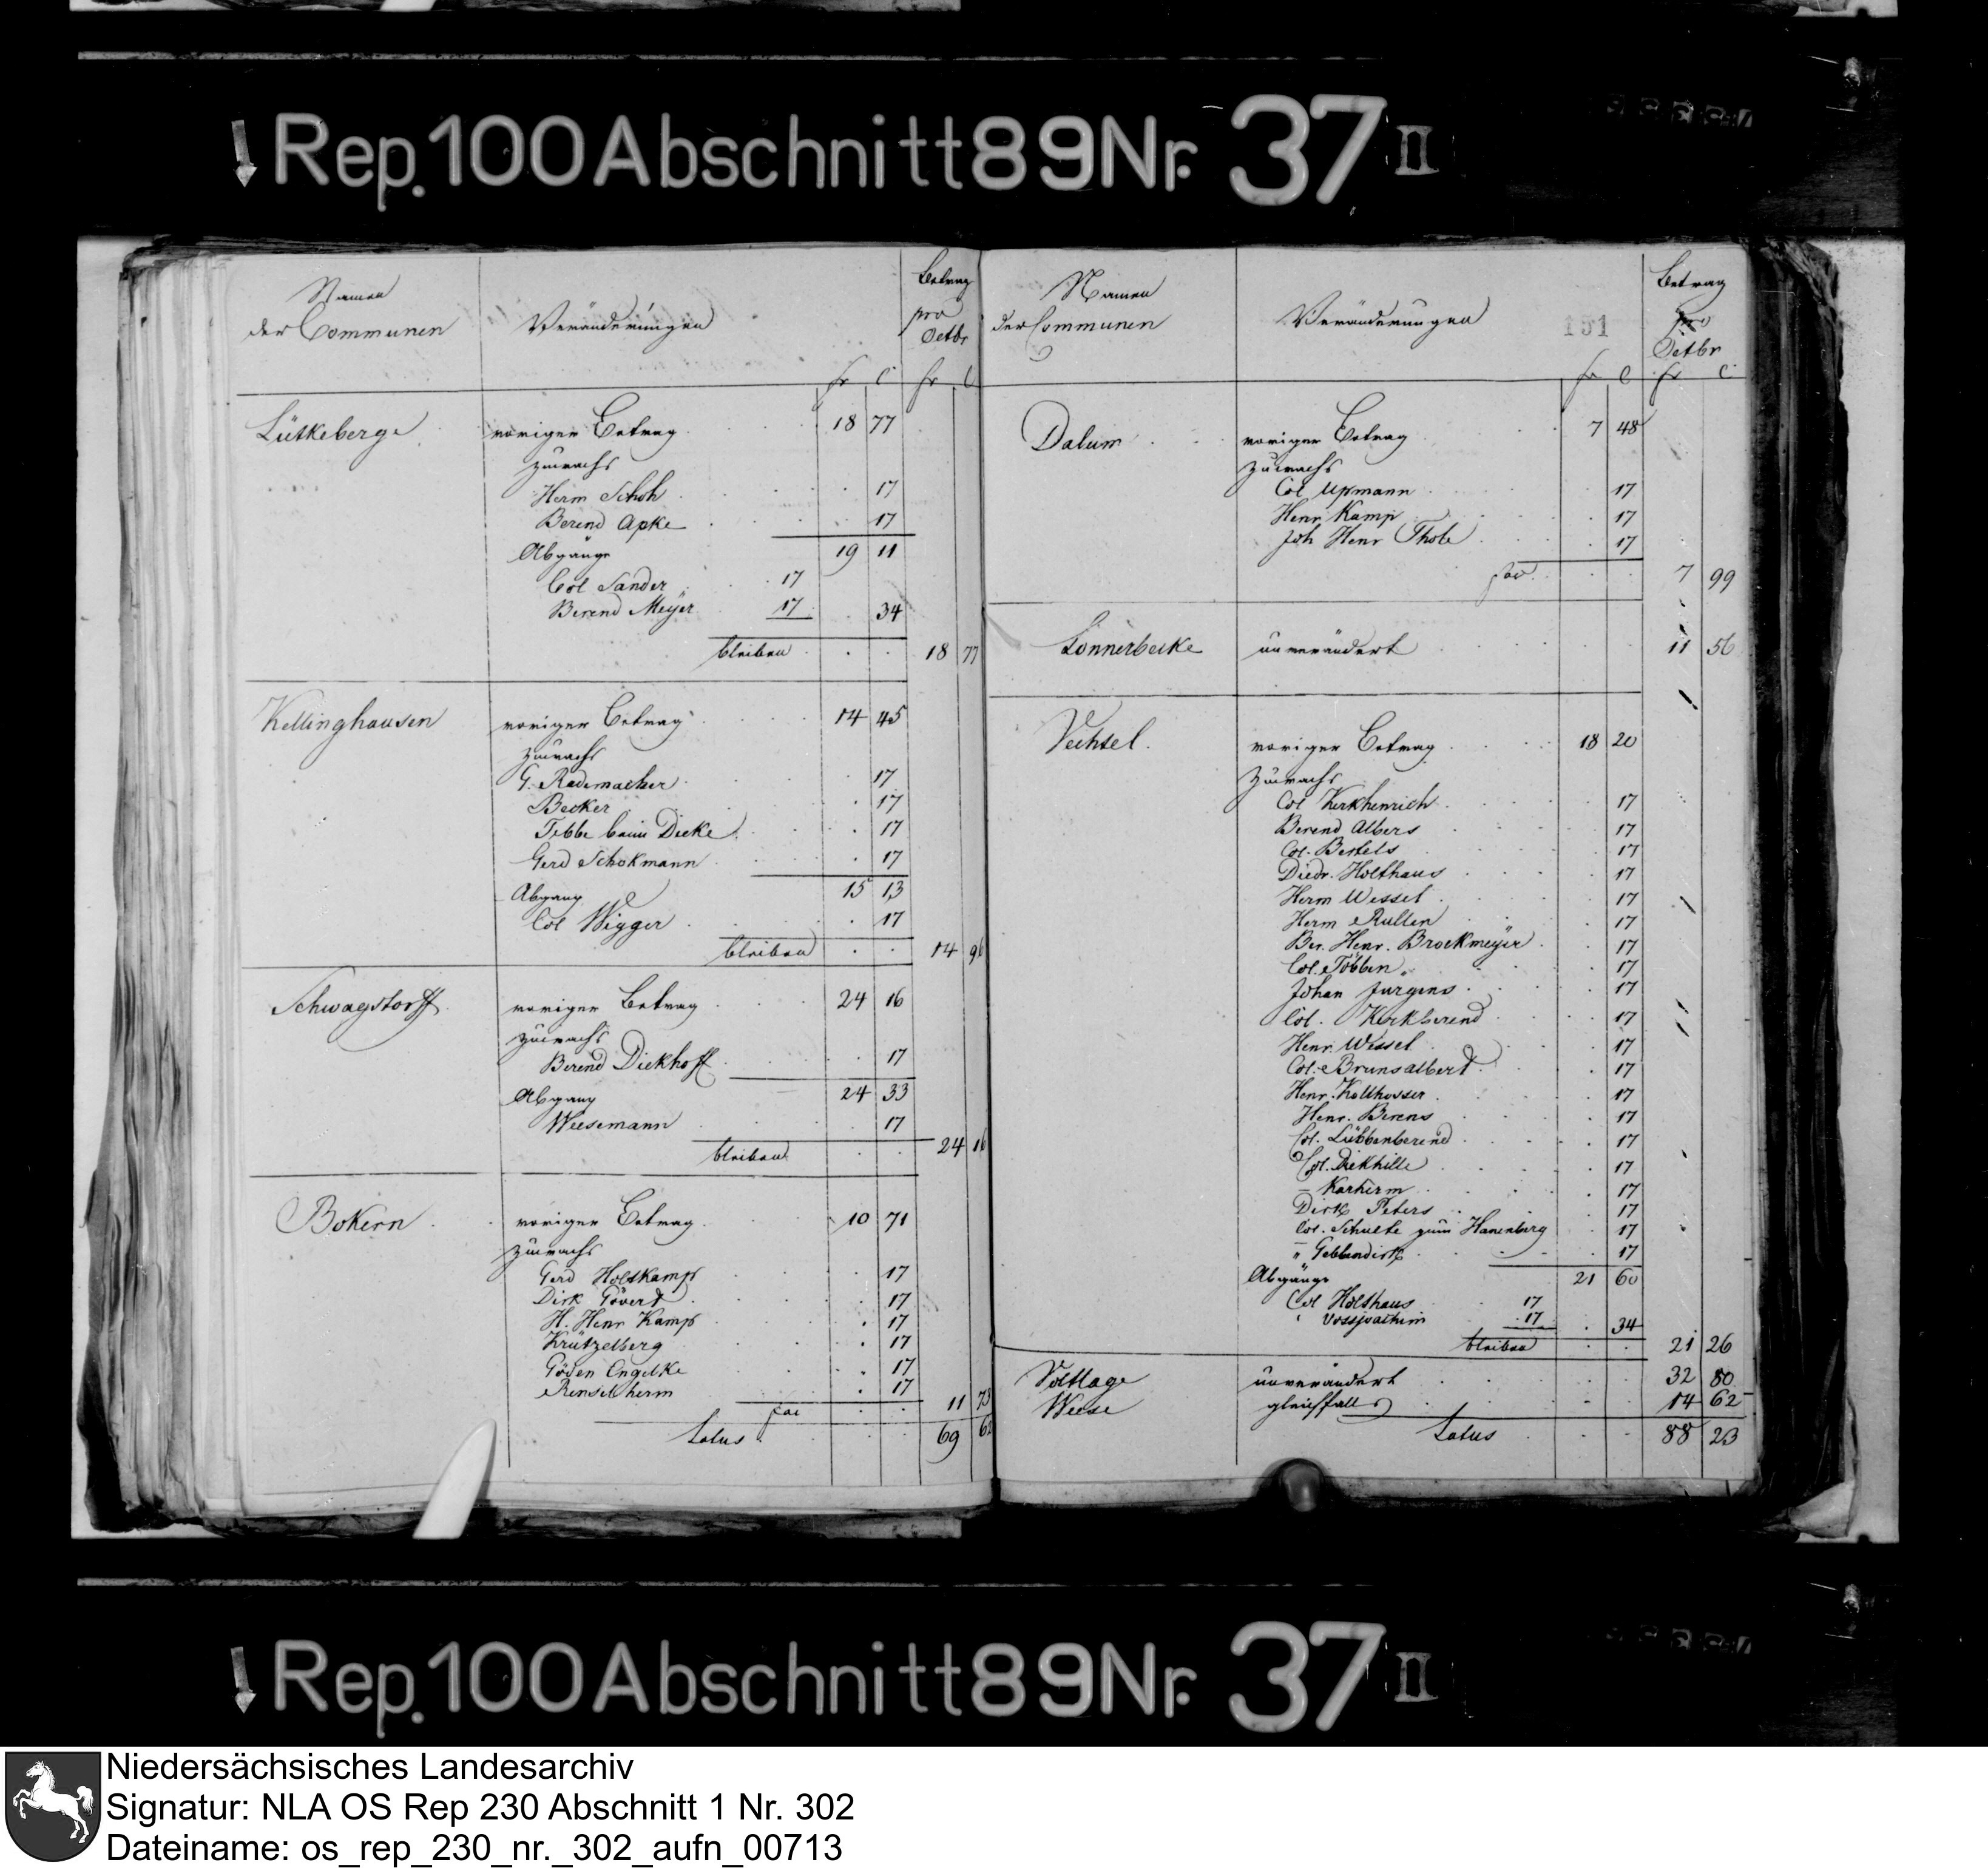 Rep. 100 Abschnitt 89 Nr. 37 II
Namen der Communen
Veränderungen
fr C
Betrag pro Octbr
fr C
Lütkeberge
voriger Betrag 18 77
Zuwachs
Herm Schoh 17
Berend Apke 17
Abgänge 19 11
Col Sander 17
Berend Meyer 17 34
bleiben 18 77
Kellinghausen
voriger Betrag 14 45
Zuwachs
G. Rademacher 17
Becker 17
Tebbe beim Dieke 17
Gerd Schokmann 17
Abgang 15 13
Col Wigger 17
bleiben 14 96
Schwagstorff
voriger Betrag 24 16
Zuwachs
Berend Diekhoff 17
Abgang 24 33
Weesemann 17
bleiben 24 16
Bokern
voriger Betrag 10 71
Zuwachs
Gerd Holtkamp 17
Dirk Gövert 17
H. Henr Kamp 17
Krützelberg 17
Göden Engelke 17
Renselherm 17
11 73
Latus 69 62
Namen der Communen
Veränderungen
151
fr C
Betrag pro Octbr
fr C
Dalum
voriger Betrag 7 48
Zuwachs
Col Upmann 17
Henr Kamp 17
Joh Henr Thole 17
7 99
Lonnerbecke unverändert 11 56
Vechtel
voriger Betrag 18 20
Zuwachs
Col Kerkhenrich 17
Berend Albers 17
Col. Bertels 17
Diedr. Holthaus 17
Herm Wessel 17
Herm Rullen 17
Ber. Henr. Brockmeyer 17
Col. Többen 17
Johan Jurgens 17
Col. Kerkberend 17
Henr. Wessel 17
Col. Brunsalbert 17
Henr. Kolthosser 17
Henr. Berens 17
Col. Lübbenberend 17
Col. Diekhille 17
– Karherm 17
Dirk Peters 17
Col. Schulte zum Hanenberg 17
" Gebbendirk 17
Abgänge 21 60
Col Holthaus 17
" Vossjoachim 17 34
bleiben 21 26
Voltlage unverändert 32 80
Weese gleichfalls 14 62
Latus 88 23
Rep. 100 Abschnitt 89 Nr. 37 II
Niedersächsisches Landesarchiv
Signatur: NLA OS Rep 230 Abschnitt 1 Nr. 302
Dateiname: os_rep_230_nr._302_aufn_00713